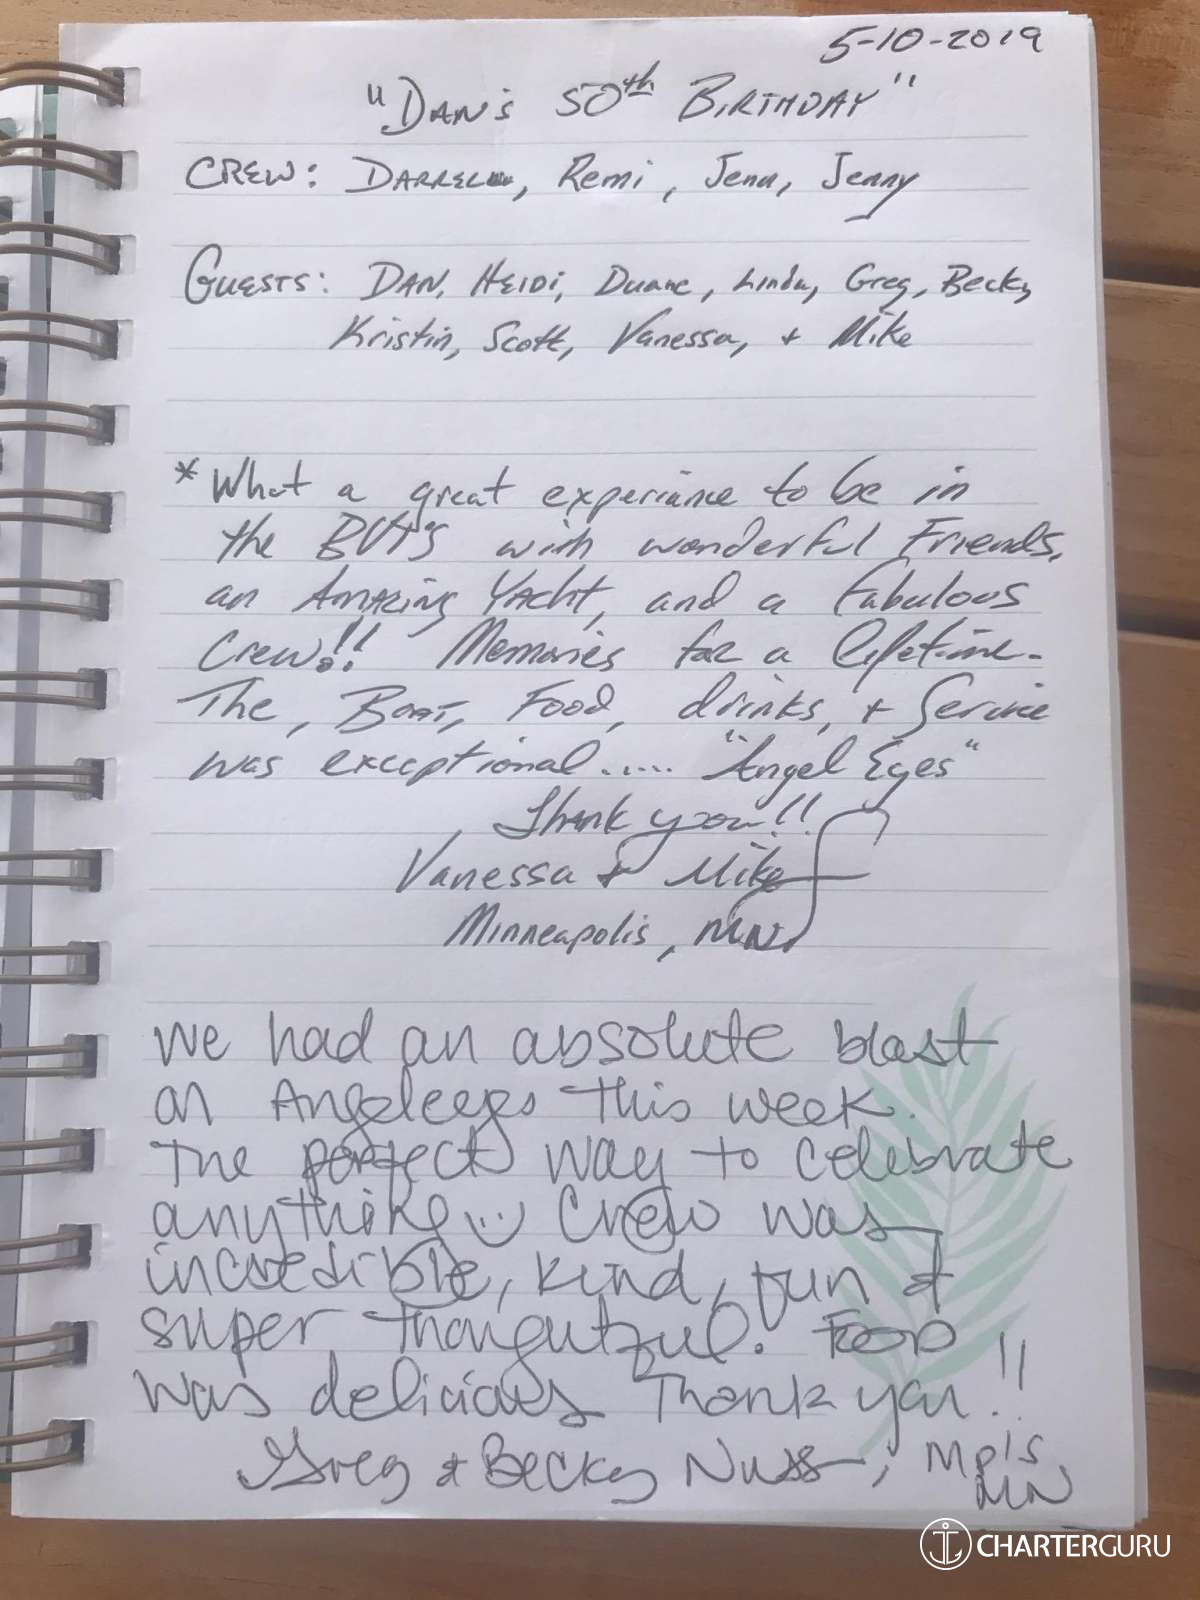 5-10-2019
"DAN'S 50th BIRTHDAY"
CREW: DARREL, Remi, Jenn, Jenny
GUESTS: DAN, HEIDI, Duane, Linda, Greg, Becky,
Kristin, Scott, Vanessa, + Mike
*What a great experiance to be in
the BVI's with wonderful Friends,
an AMAZING YACHT, and a Fabulous
Crew!! Memories for a lifetime.
The, BOAT, Food, drinks, + Service
was exceptional..... "Angel Eyes"
Thank you!!
Vanessa & Mike
Minneapolis, MN.
We had an absolute blast
on Angeleeyes this week.
The perfect way to celebrate
anything Crew was
incredible, kind, fun &
super thoughtful. Food
was delicious Thank you!!
Greg & Becky Nuss, Mpls
MN
CHARTERGURU